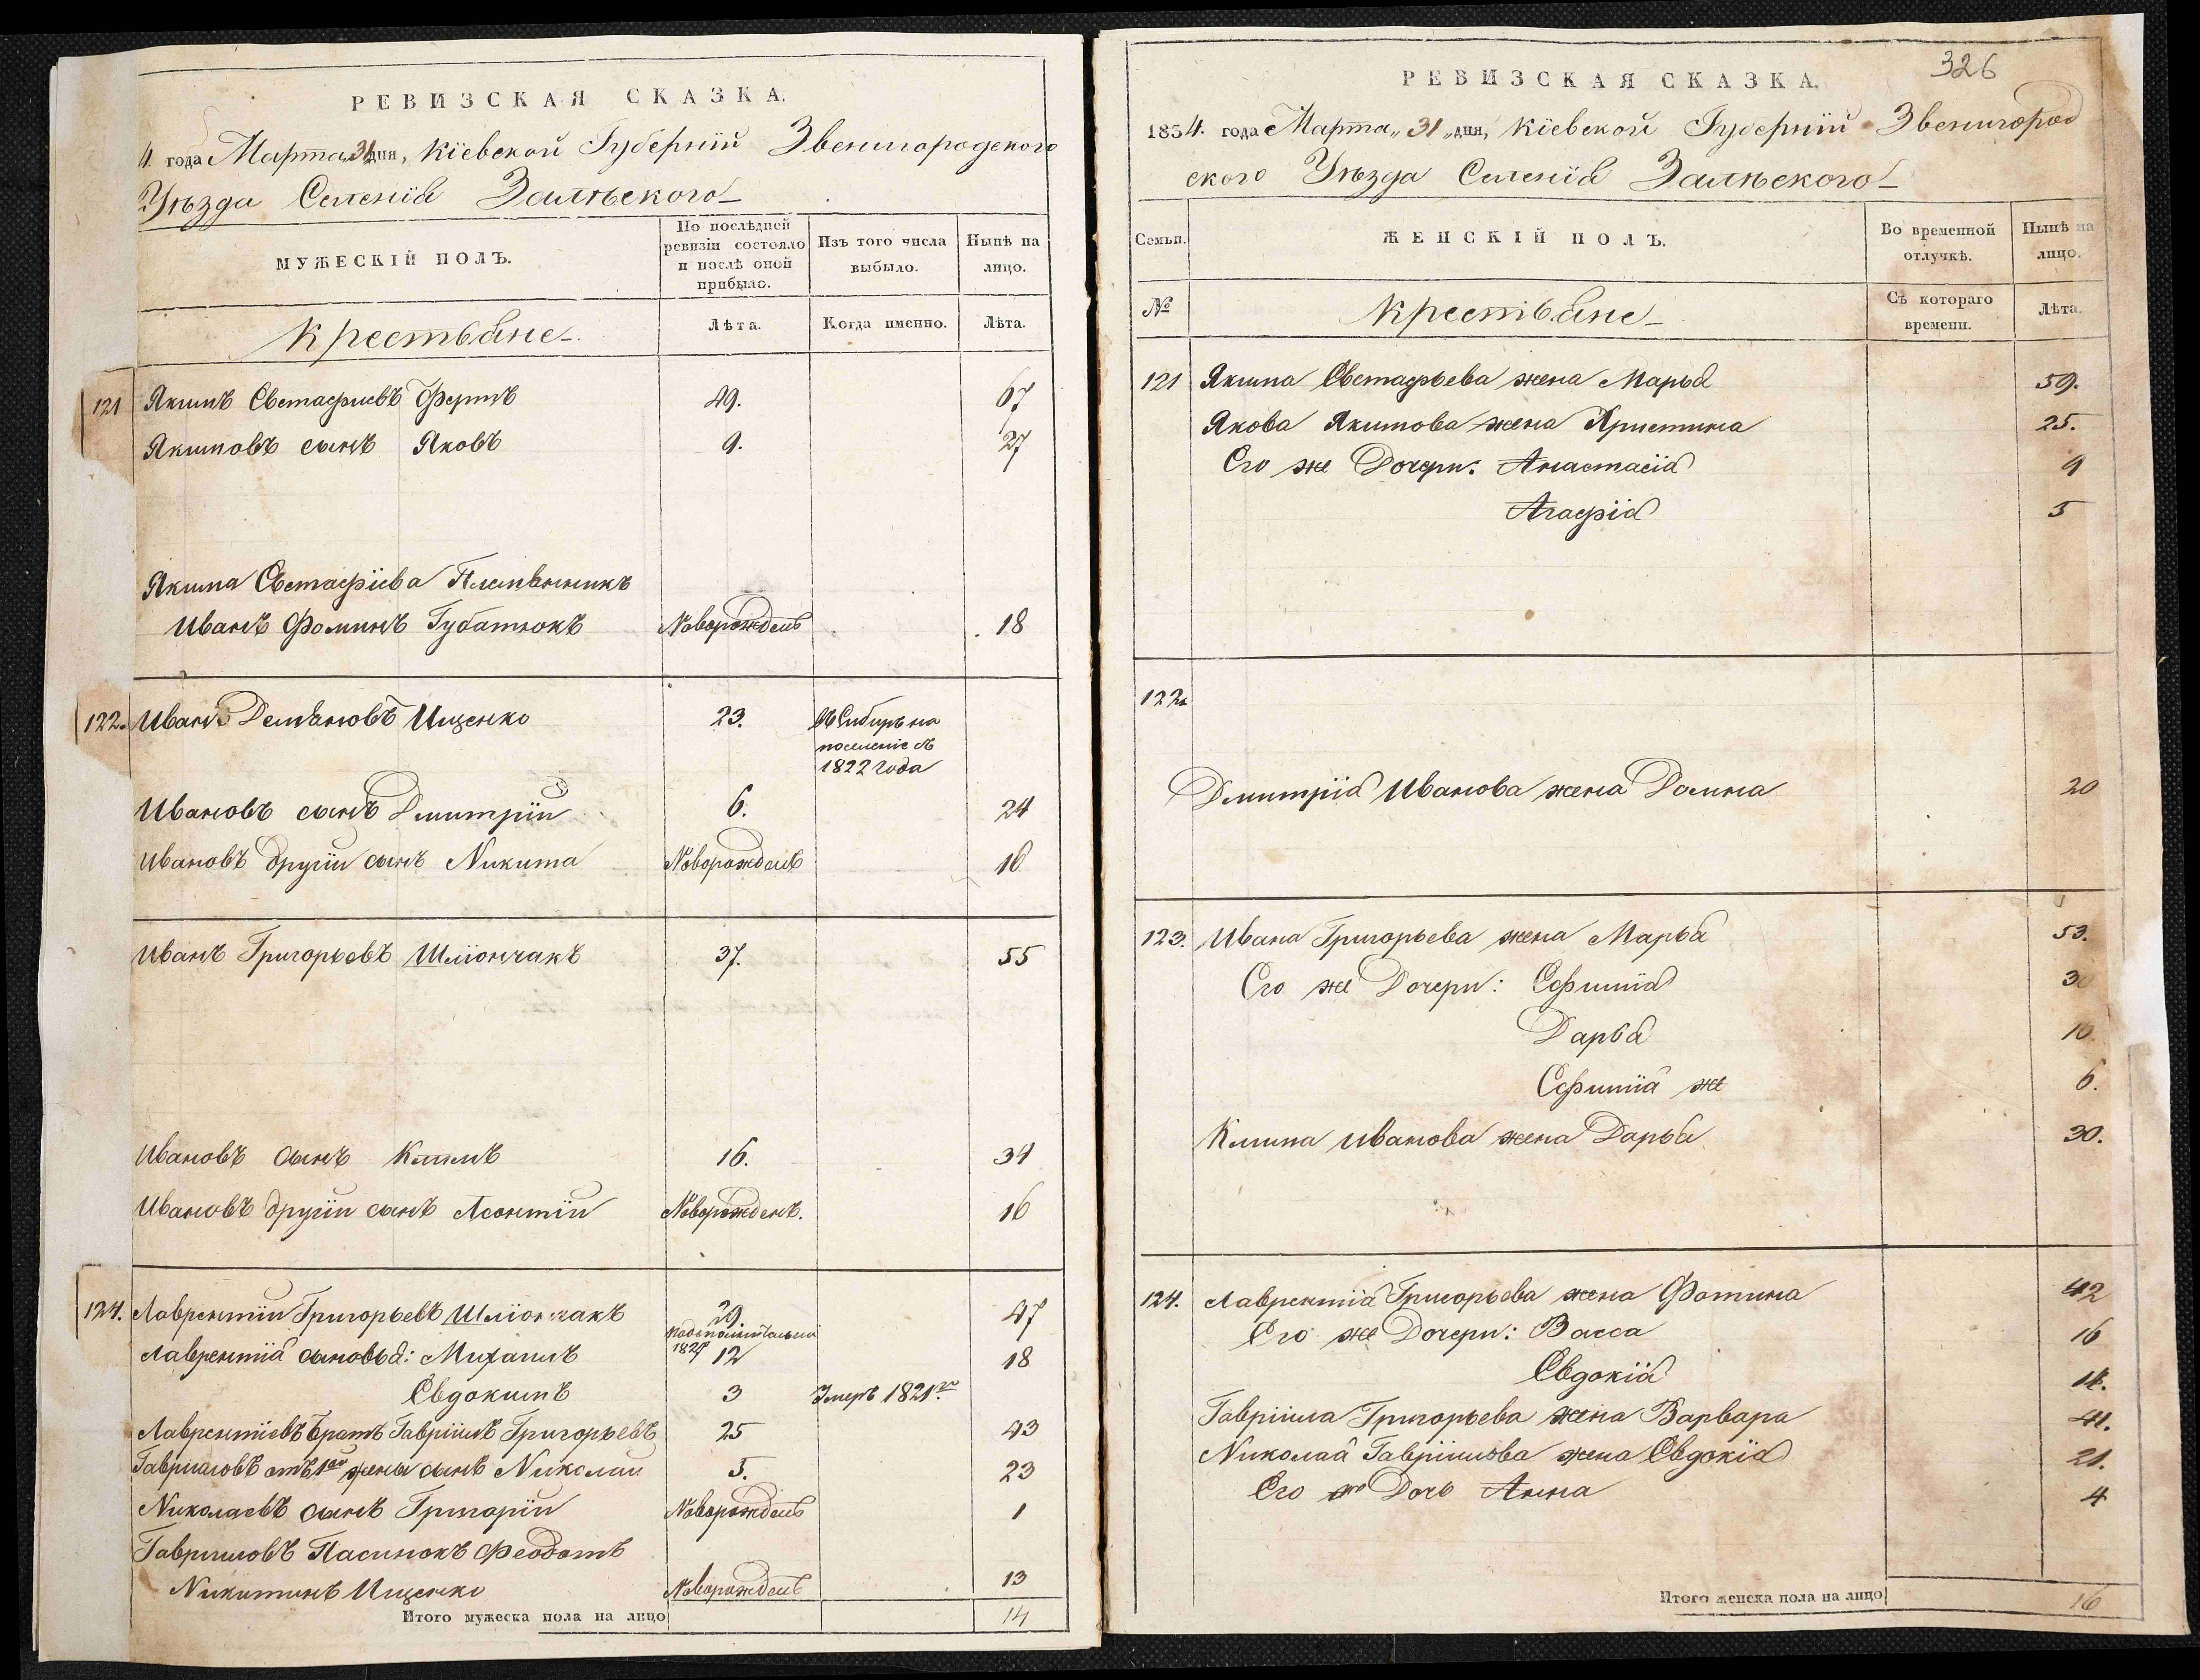 РЕВИЗСКАЯ СКАЗКА.
4. года Марта 31 дня, Кіевской Губерніи Звенигородского
Уѣзда Селенія Залѣского
МУЖЕСКІЙ ПОЛЪ.
По послѣдней ревизіи состояло и послѣ оной прибыло.
Изъ того числа выбыло.
Нынѣ на лицо.
Крестьяне
Лѣта.
Когда именно.
Лѣта.
121 Якимъ Евстафиевъ Фертъ 49. 67
Якимовъ сынъ Яковъ 9. 27
Якима Евстафіева Племянникъ
Иванъ Фоминъ Губатюкъ Новорожденъ 18
122. Иванъ Демьяновъ Ищенко 23. въ Сибирь на
поселеніе съ
1822 года
Ивановъ сынъ Дмитрій 6. 24
Ивановъ другій сынъ Никита Новорожденъ 16
Иванъ Григорьевъ Шліончакъ 37. 55
Ивановъ сынъ Климъ 16. 34
Ивановъ другій сынъ Леонтій Новорожденъ. 16
124. Лаврентій Григорьевъ Шліончакъ 29. 47
Лаврентія сыновья: Михаилъ 12 18
Евдокимъ 3 Умеръ 1821го
Лаврентіевъ братъ Гавріилъ Григорьевъ 25 43
Гавриловъ отъ 1ой жены сынъ Николай 5. 23
Николаевъ сынъ Григорій Новорожденъ 1
Гавриловъ Пасинокъ Феодотъ
Никитинъ Ищенко Новорожденъ 13
Итого мужеска пола на лицо 14
326
РЕВИЗСКАЯ СКАЗКА.
1834. года Марта „31„ дня, Кіевской Губерніи Звенигород
ского Уѣзда Селенія Залѣского
Семьи.
ЖЕНСКІЙ ПОЛЪ.
Во временной отлучкѣ.
Нынѣ на лицо.
№
Крестьяне
Съ котораго времени.
Лѣта.
121 Якима Евстафьева жена Марья 59.
Якова Якимова жена Христина 25.
Его же Дочери: Анастасія 9
Агафія 5
122.
Дмитрія Иванова жена Домна 20
123. Ивана Григорьева жена Марья 53.
Его же Дочери: Ефимія
Дарья 10.
Ефимія же 6.
Клима Иванова жена Дарья 30.
124. Лаврентія Григорьева жена Фотина 42
Его же Дочери: Васса 16
Евдокія 14.
Гавріила Григорьева жена Варвара 41.
Николая Гавріилова жена Евдокія 21.
Его же Дочь Анна 4
Итого женска пола на лицо 16